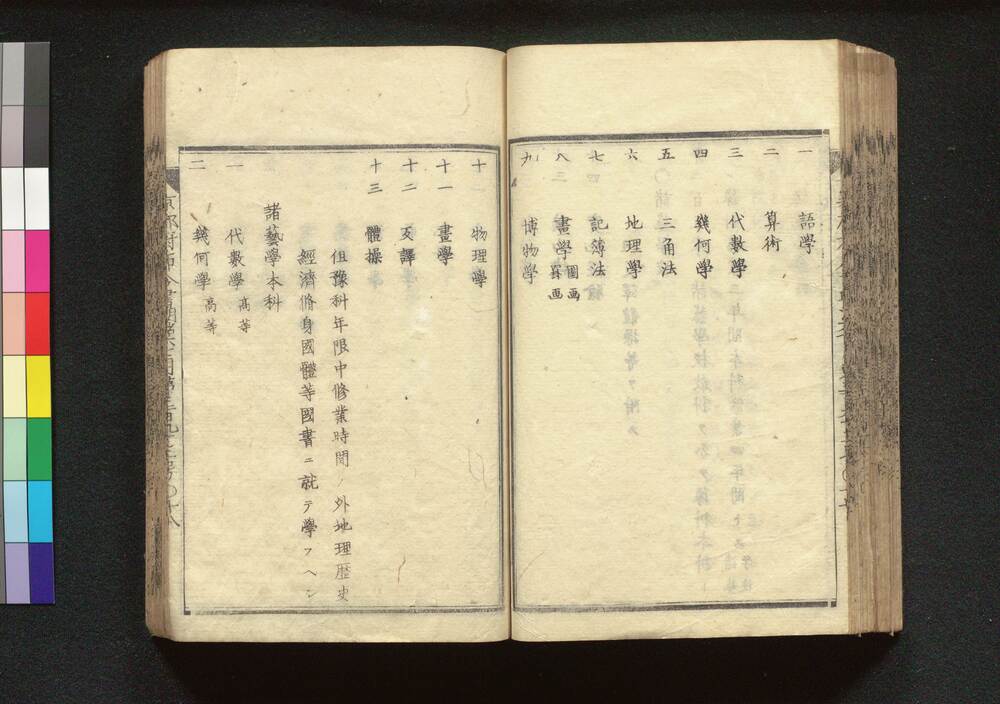 一 語學
二 算術
三 代數學
四 幾何學
五 三角法
六 地理學
七 記簿法
八 畫學 圖画 寫画
九 博物學
十 物理學
十一 畫學
十二 反譯
十三 體操
但豫科年限中修業時間ノ外地理歴史
經濟脩身國體等國書ニ就テ學フヘシ
諸藝學本科
一 代數學 高等
二 幾何學 高等